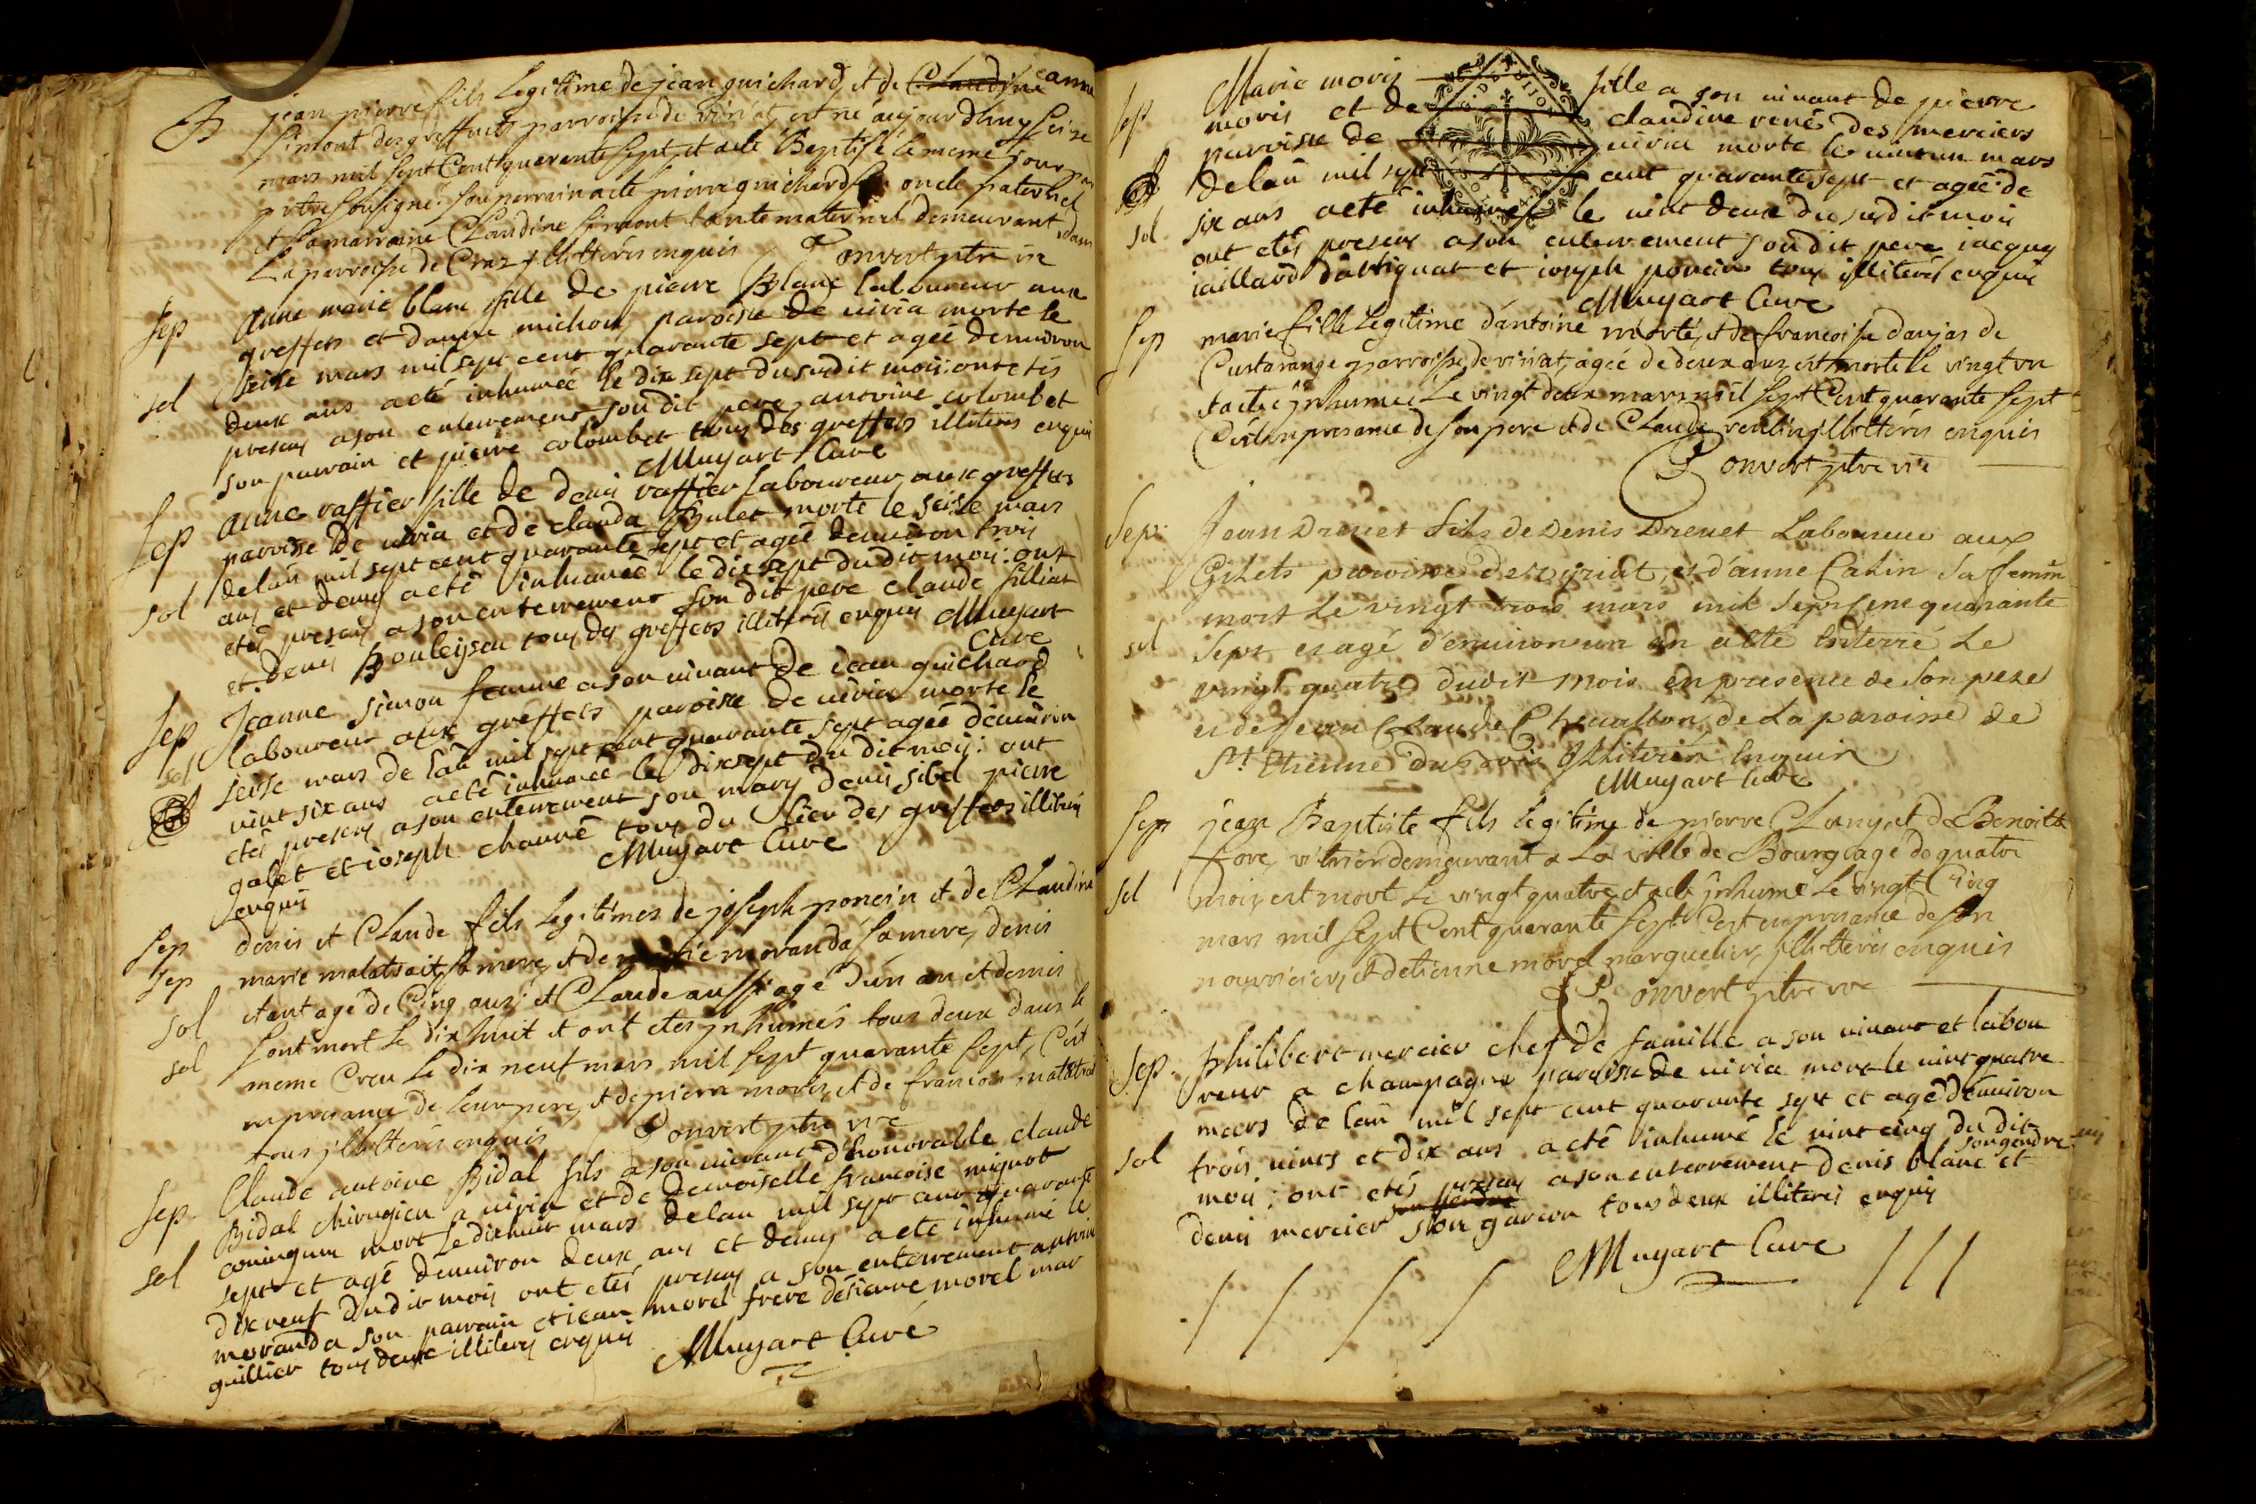 B jean pierre fils legitime de jean guichard, et de Claudine anne
simont des greffets parroisse de viriat, est né aujourdhuy seize
mars mil sept Cent quarente sept, et a eté Baptisé le meme jour par
prtre sousigné: son parrain a eté pierre guichard son oncle paternel
et sa marraine Claudine simont tante maternel demeurant dans
la parroisse de Craz illitterés enquis Convert ptre vre
Sep anne marie blanc fille de pierre Blanc laboureur aux
greffets et danne michon paroisse de viria morte le
seise mars mil sept cent quarante sept et agée denviron
sol deux ans a eté inhumée le dix sept du sudit mois: ont etés
presens a son enterrement son dit pere, antoine colombet
son parrain et pierre colombet tous des greffets illiterés enquis
Muyart Curé
Sep anne raffier fille de denis raffier laboureur aux greffets
paroisse de viria et de clauda Bulet morte le seise mars
delan mil sept cent quarante sept et agée denviron trois
sol ans et demy a eté inhumée le dix sept du dit mois: ont
etés presens a son enterrement son dit pere claude filliat
et denis Bouleyson tous des greffets illiterés enquis Muyart
Curé
Sep Jeanne simon femme a son vivant de jean guichard
laboureur aux greffets paroisse de viria morte le
sol seise mars de lan mil sept cent quarante sept agée denviron
vint six ans a eté inhumée le dix sept du dit mois: ont
etés presens a son enterrement son mary denis sibel pierre
galet et joseph chanel tous du lieu des greffets illiterés
enquis Muyart Curé
Sep denis et Claude fils legitimes de joseph poncin et de Claudine
Sep marie malatrait sa mere, et de moranda sa mere, denis
sol etant agé de Cinq ans, et Claude aussi agé d'un an et demis
sol sont mort le dix huit et ont etes inhumés tous deux dans le
meme Creu le dix neuf mars mil sept quarante sept, C'est
en presance de leur pere, et de pierre moris, et de francois malatrai
tous illitterés enquis Convert ptre vre
Sep Claude antoine Bidal fils a son vivant d'honorable claude
Bidal chirugien a viria et de demoiselle francoise mignot
coningum mort le dix huit mars de lan mil sept cent quarante
sol sept et agé denviron deux ans et demy a eté inhumé le
dix neuf du dit mois ont etés presens a son enterrement antoine
moranda son parrain et jean morel frere détienne morel mar
guillier tous deux illiterés enquis
Muyart Curé
Sep Marie moris fille a son vivant de pierre
moris et de claudine rené des merciers
paroisse de viria morte le vint un mars
delan mil sept cent quarante sept et agée de
sol six ans a eté inhumée le vint deux du sudit mois
ont etés presens a son enterrement son dit pere jacques
jaillard d'attignat et joseph poncin tous illiterés enquis
Muyart Curé
Sep marie fille legitime d'antoine morté, et de francoise danjas de
Curtarange parroisse de viriat, agée de deux ans, est morte le vingt vn
et a eté inhumée le vingt deux mars mil sept Cent quarante sept
C'est en presance de son pere et de Claude illitterés enquis
Convert ptre vre
Sep: Jean Drevet fils de Denis Drevet Laboureur aux
Gilets paroisse de viriat, et d'anne Catin sa femme
mort Le vingt trois mars mil sept cent quarante
sol sept et agé d'environ un an a eté Enterré Le
vingt quatre dudit mois en presence de son pere
et de jean Claude Chevallon, de La paroisse de
St Etienne du bois Illiterés Enquis
Muyart Curé
Sep jean Baptiste fils legitime de pierre Cluny, et de Benoitte
fore vitrier demeurant a La ville de Bourg agé de quatre
sol mois est mort le vingt quatre, et a eté inhumé le vingt Cinq
mars mil sept Cent quarante sept C'est en presance de son
nourricier, et detienne morel marguelier, illitterés enquis
Convert ptre vre
Sep. philibert mercier chef de famille a son vivant et labou
reur a champagne paroisse de viria mort le vint quatre
mars de lan mil sept cent quarante sept et agé denviron
sol trois vints et dix ans a eté inhumé le vint cinq du dit
mois: ont etés presens a son enterrement denis blanc son gendre et
denis mercier son garcon tous deux illiterés enquis
Muyart Curé